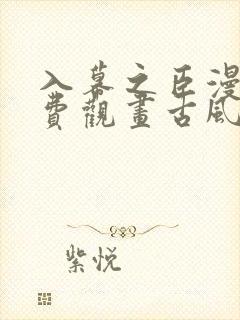 入幕之臣漫
費觀畫古風
紫悦